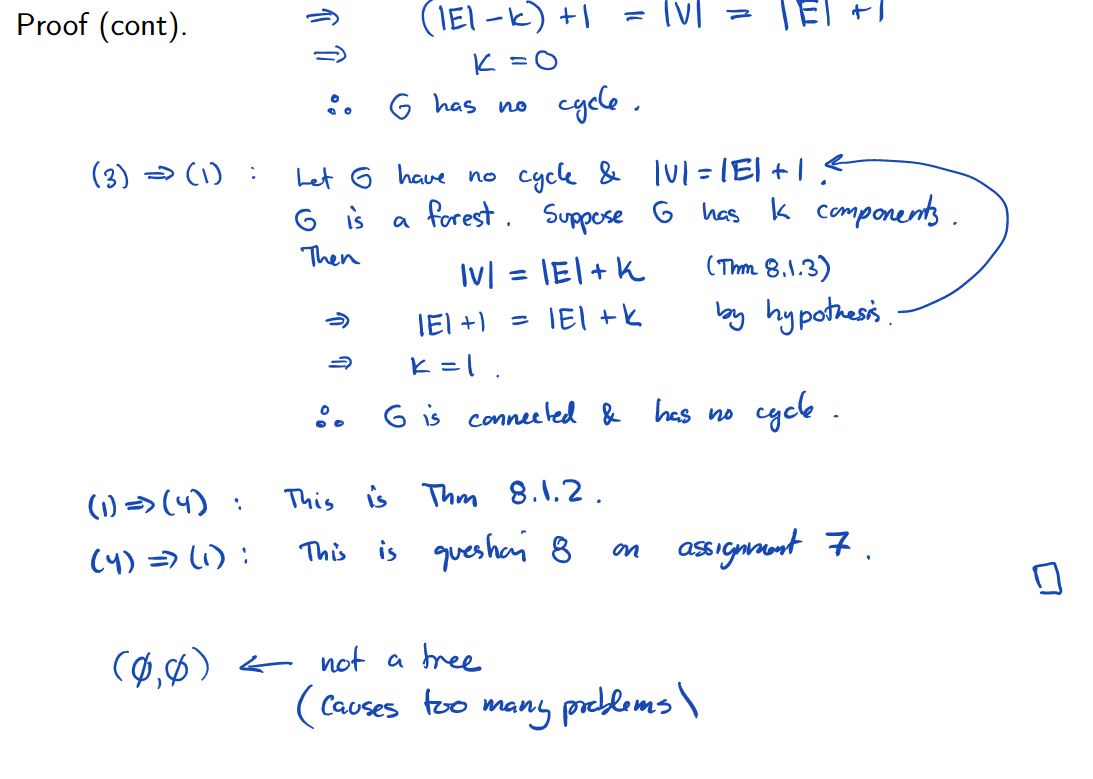 Proof (cont).
⇒ (|E| - k) + 1 = |V| = |E| + 1
⇒ k = 0
∴ G has no cycle.
(3) ⇒ (1) : Let G have no cycle & |V| = |E| + 1.
G is a forest. Suppose G has k components.
Then
|V| = |E| + k (Thm 8.1.3)
⇒ |E| + 1 = |E| + k by hypothesis.
⇒ k = 1.
∴ G is connected & has no cycle.
(1) ⇒ (4) : This is Thm 8.1.2.
(4) ⇒ (1) : This is question 8 on assignment 7.
□
(∅,∅) ← not a tree
(causes too many problems)